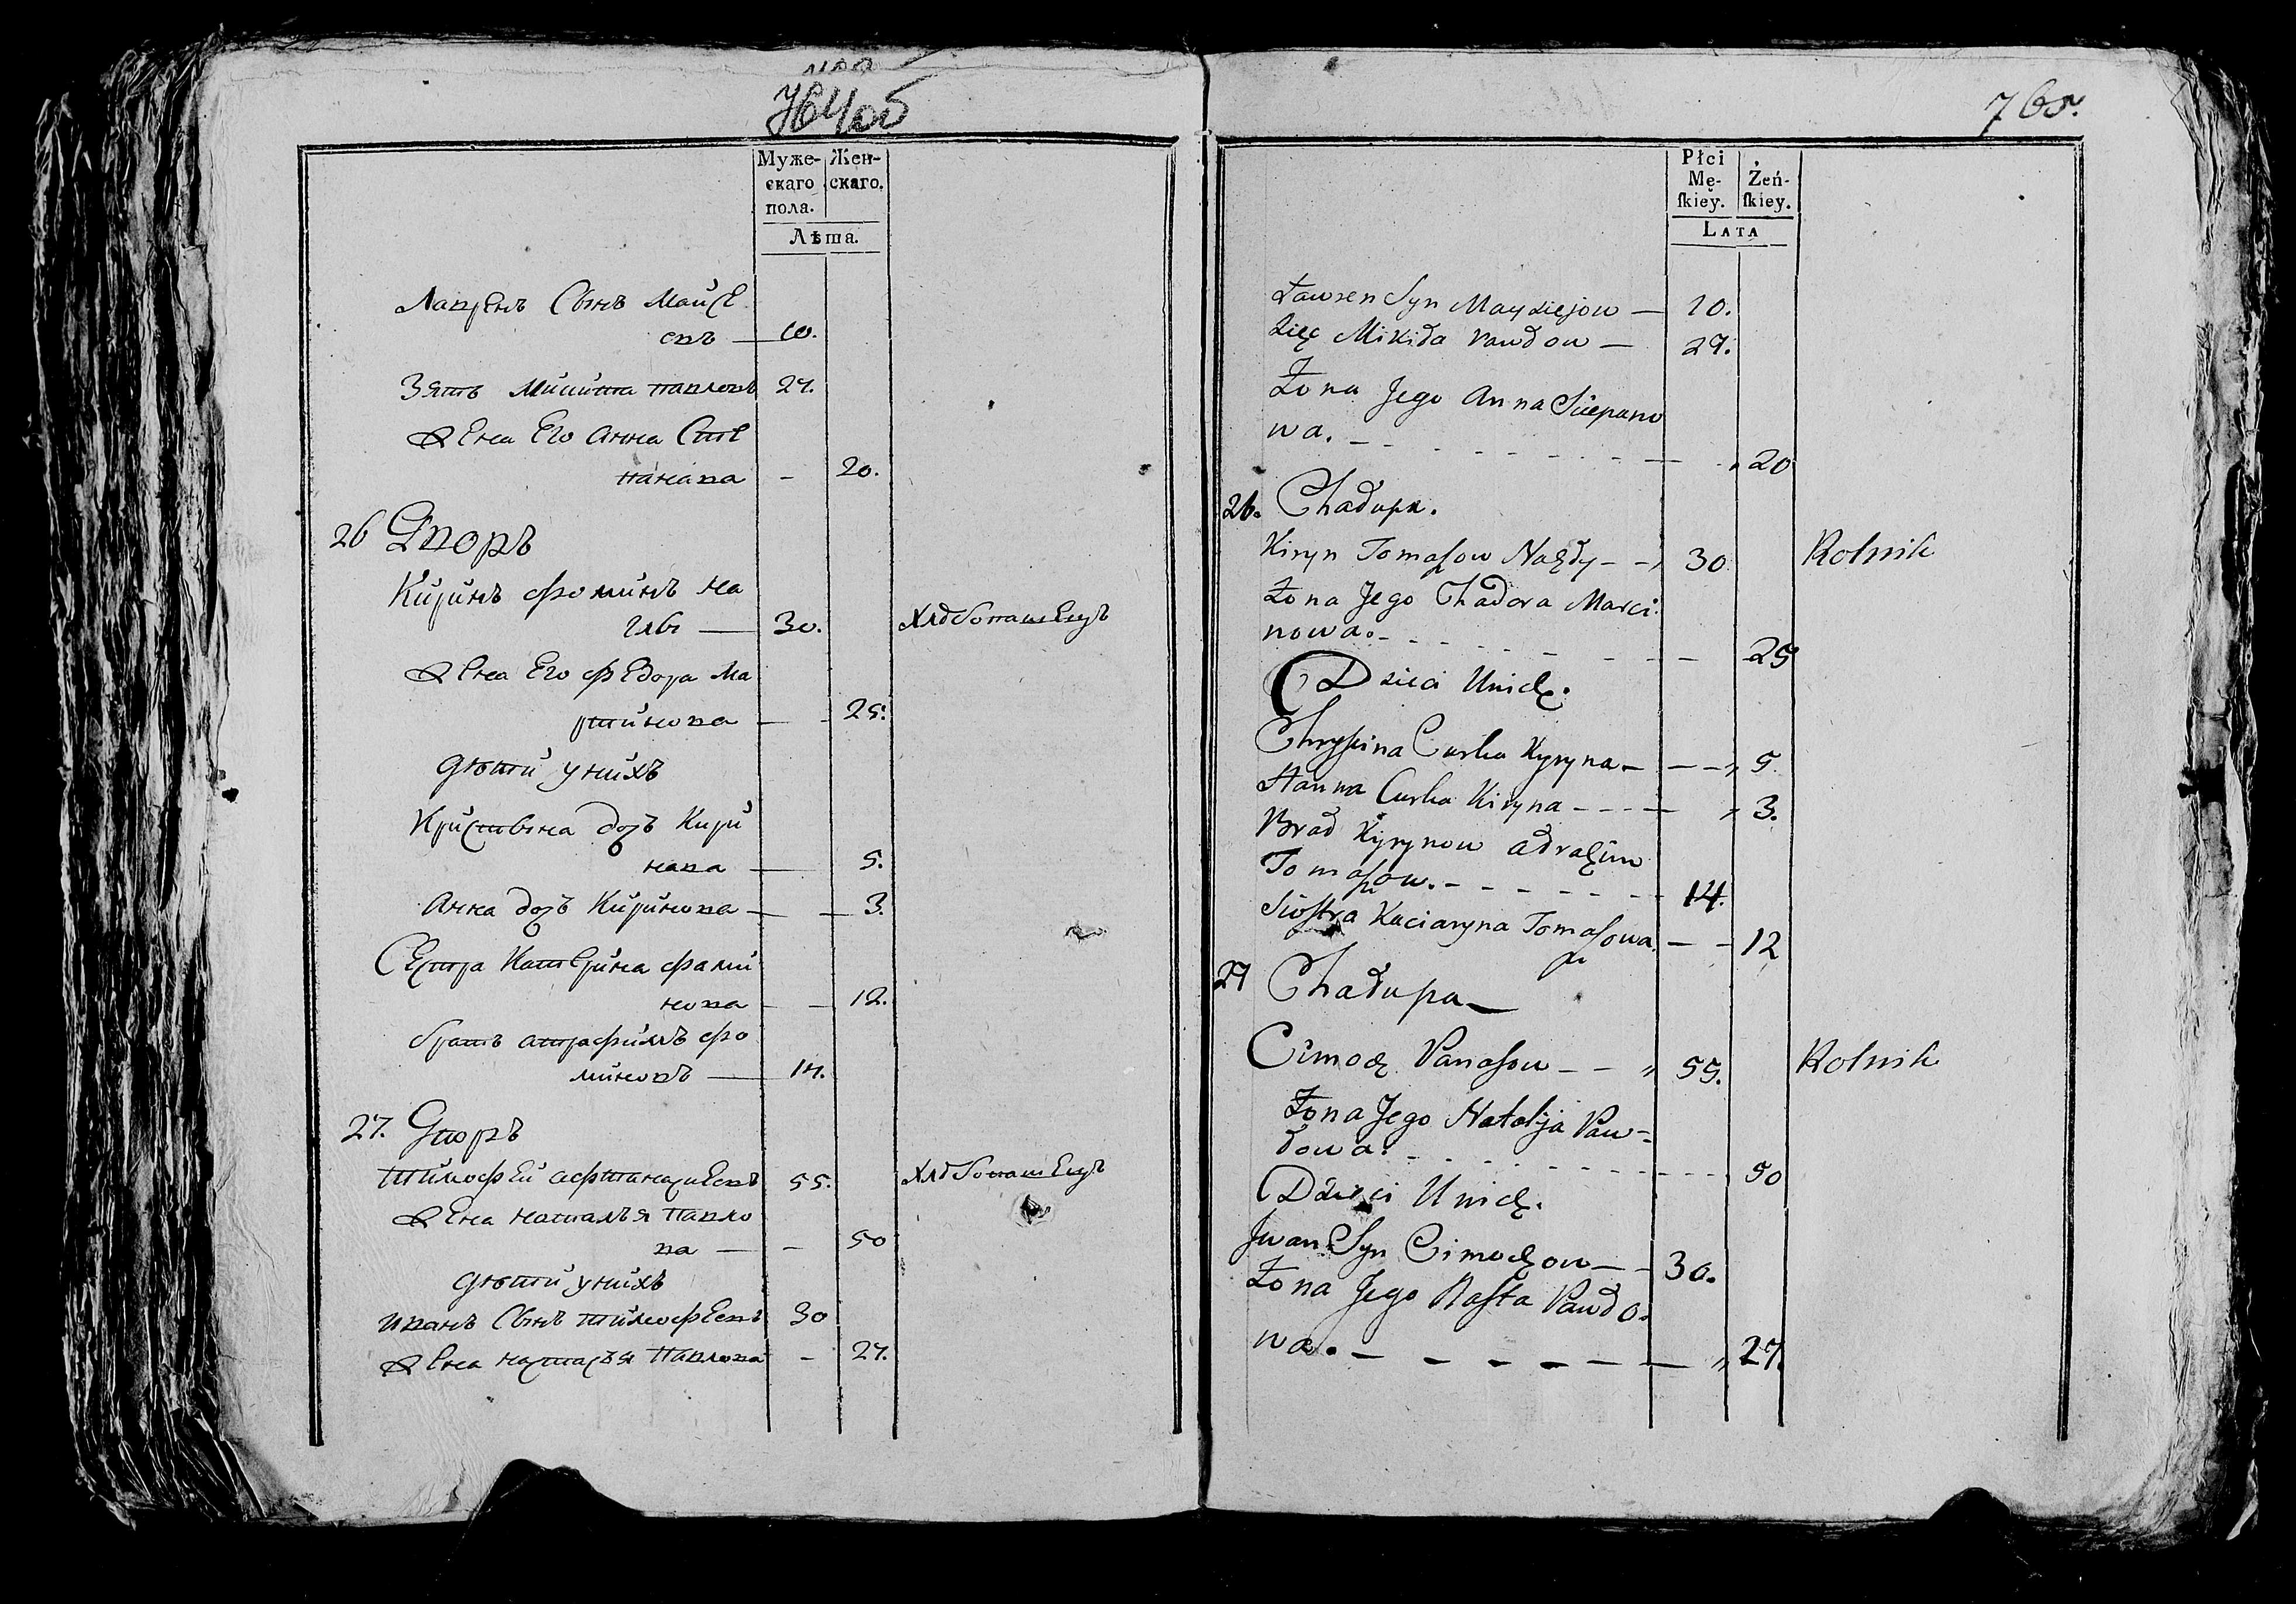 Муже-
скаго
пола.
Жен-
скаго.
Лѣта.
Лаврѣнъ Сынъ Майсе
евъ — 10.
Зять Микита павловъ 27.
Жена Его Анна Сте
панава - 20.
26 Дворъ
Киринъ фоминъ на
30. Хлебопашецъ
Жена Его федора Ма
ртинова — 25.
дѣти уних
Кристына дочь Кири
нава — 5.
Анна дочь Киринова — 3.
Сестра Катерина фами
нова — 12.
братъ атрафимъ фо
миновъ — 14.
27. Дворъ
Тимофей 55. Хлебопашецъ
Жена наталья павло
ва — - 50
дѣти уних
иванъ Сынъ тимофеевъ 30
Жена настасья Павлова - 27.
765.
Płci
Mę-
ſkiey.
Żeń-
ſkiey.
LATA
Ławren Syn Mayziejow — 10.
Zięc Mikida Pawdow — 27.
Żona Jego Anna Sciepano
wa. 20
26. Chadupa.
Kiryn Tomaszow 30 Rolnik
Żona Jego Chadora Marci:
nowa. 25
Dzieci Unich.
Chryscina Curka Kyryna — 5.
Hanna Curka Kiryna 3.
Brad Kyrynow Adrachim
Tomaszow. 14.
Siostra Kaciaryna Tomaszowa. — 12
27 Chadupa —
Cimoch Panasow — 55. Rolnik
Żona Jego Natalja Paw=
dowa. 50
Dzieci Unich.
Jwan Syn Cimochow — 30.
Żona Jego Nasta Pawdo.
wa. — 27.